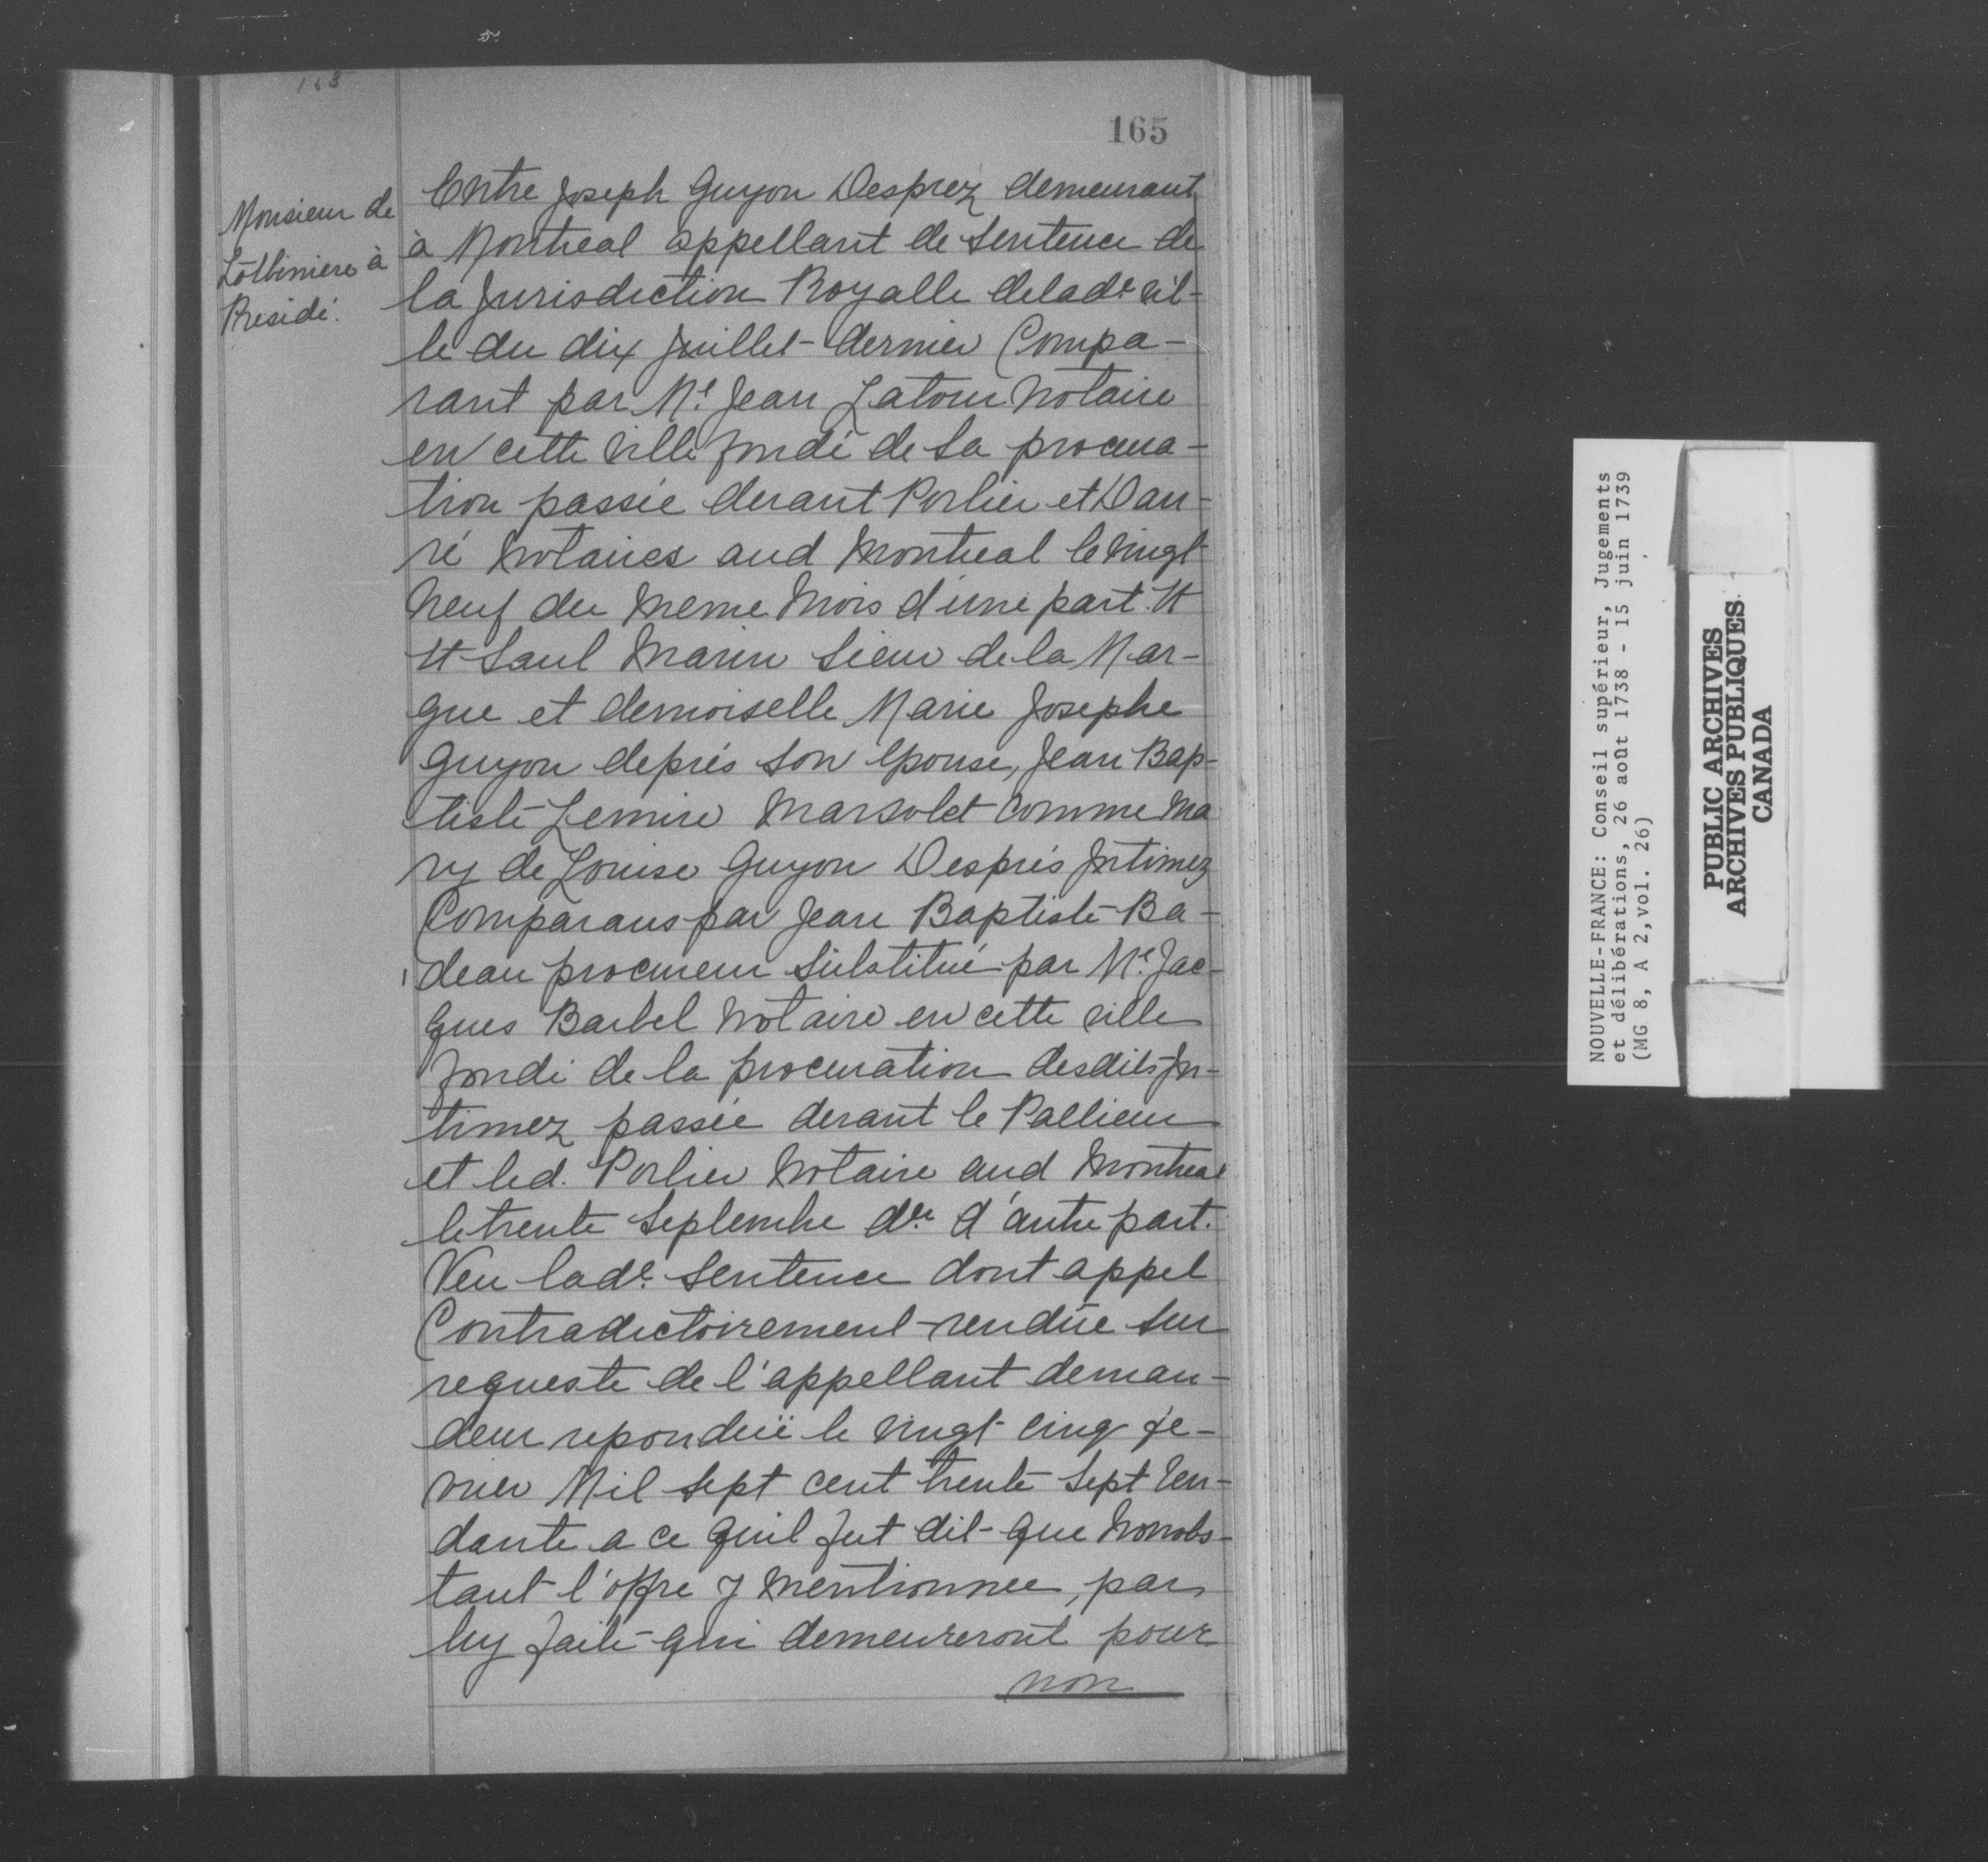 165
Monsieur de
Lotbiniere à
Presidé.
Entre Joseph Guyon Desprez demeurant
à Montreal appellant de Sentence de
la Jurisdiction Royalle delade vil-
le du dix Juillet dernier Compa-
rant par Me Jean Latour Notaire
en cette ville fondé de Sa procura-
tion passée devant Porlier et Dan-
ré Notaires aud Montreal le vingt
Neuf du Meme Mois d'une part. Et
Et Saul Marin Sieur de la Mar-
que et demoiselle Marie Josephe
Guyon deprés Son epouse, Jean Bap-
tiste Lemire Marsolet comme Ma
ry de Louise Guyon Després Intimez
Comparans par Jean Baptiste Ba-
deau procureur Substitué par Me Jac-
ques Barbel Notaire en cette ville
fondé de la procuration desdits In-
timez passée devant le Pallieur
et led. Porlier Notaire aud Montreal
le trente Septembre der d'autre part.
Veu lade. Sentence dont appel
Contradictoirement rendüe Sur
requeste de l'appellant deman-
deur reponduë le vingt cinq fe-
vrier Mil Sept cent trente Sept ten-
dante a ce quil fut dit que Nonobs-
tant l'offre y Mentionnee, par
luy faite qui demeureront pour
non
NOUVELLE-FRANCE: Conseil supérieur, Jugements
et délibérations, 26 août 1738 - 15 juin 1739
(MG 8, A 2,vol. 26)
PUBLIC ARCHIVES
ARCHIVES PUBLIQUES
CANADA